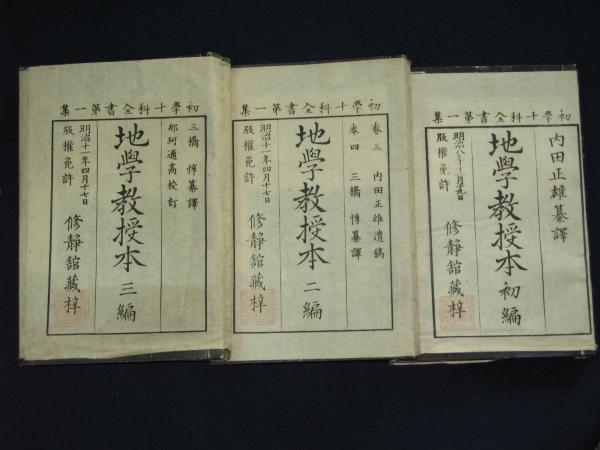 初學十科全書第一集
內田正雄纂譯
地學教授本 初編
明治八年十二月九日
版權免許
修靜舘藏梓
初學十科全書第一集
卷三 內田正雄遺稿
卷四 三橋惇纂譯
地學教授本 二編
明治十一年四月十七日
版權免許
修靜舘藏梓
初學十科全書第一集
三橋惇纂譯
那珂通高校訂
地學教授本 三編
明治十一年四月十七日
版權免許
修靜舘藏梓